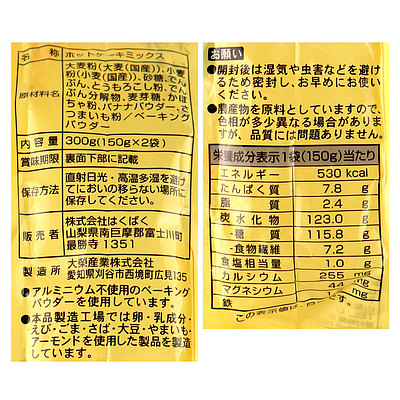 名称 ホットケーキミックス
原材料名 大麦粉(大麦(国産))、小麦
粉(小麦(国産))、砂糖、でん
ぷん、とうもろこし粉、でん
ぷん分解物、麦芽糖、かぼ
ちゃ粉、バナナパウダー、さ
つまいも粉/ベーキング
パウダー
内容量 300g(150g×2袋)
賞味期限 裏面下部に記載
保存方法 直射日光・高温多湿を避け
ておいの移らない場所に
保存してください。
販売者 株式会社はくばく
山梨県南巨摩郡富士川町
最勝寺1351
製造所 大榮産業株式会社
愛知県刈谷市西境町広見135
●アルミニウム不使用のベーキング
パウダーを使用しています。
●本品製造工場では卵・乳成分・
えび・ごま・さば・大豆・やまいも・
アーモンドを使用した製品を製造
しています。
お願い
●開封後は湿気や虫害などを避け
るため密封し、お早めにお使い
ください。
●農産物を原料としていますので、
色相が多少異なる場合があります
が、品質には問題ありません。
栄養成分表示1袋(150g)当たり
エネルギー 530 kcal
たんぱく質 7.8 g
脂質 2.4 g
炭水化物 123.0 g
-糖質 115.8 g
-食物繊維 7.2 g
食塩相当量 1.0 g
カルシウム 255 mg
マグネシウム 44 mg
鉄 mg
この表示値は、